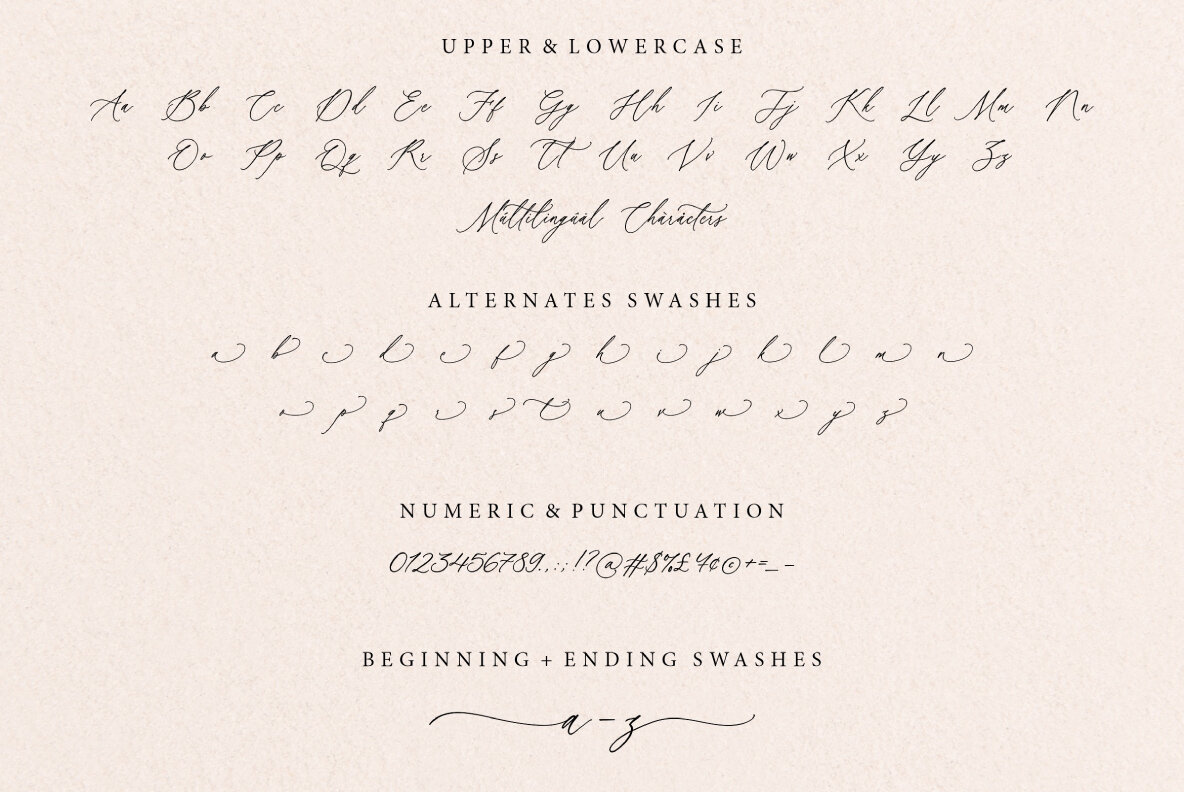 UPPER & LOWERCASE
Aa Bb Cc Dd Ee Ff Gg Hh Ii Jj Kk Ll Mm Nn
Oo Pp Qq Rr Ss Tt Uu Vv Ww Xx Yy Zz
Múltilingúál Chárácters
ALTERNATES SWASHES
a b c d e f g h i j k l m n
o p q r s t u v w x y z
NUMERIC & PUNCTUATION
0123456789.,:;!?@#$%£¥¢©+=_-
BEGINNING + ENDING SWASHES
a-z